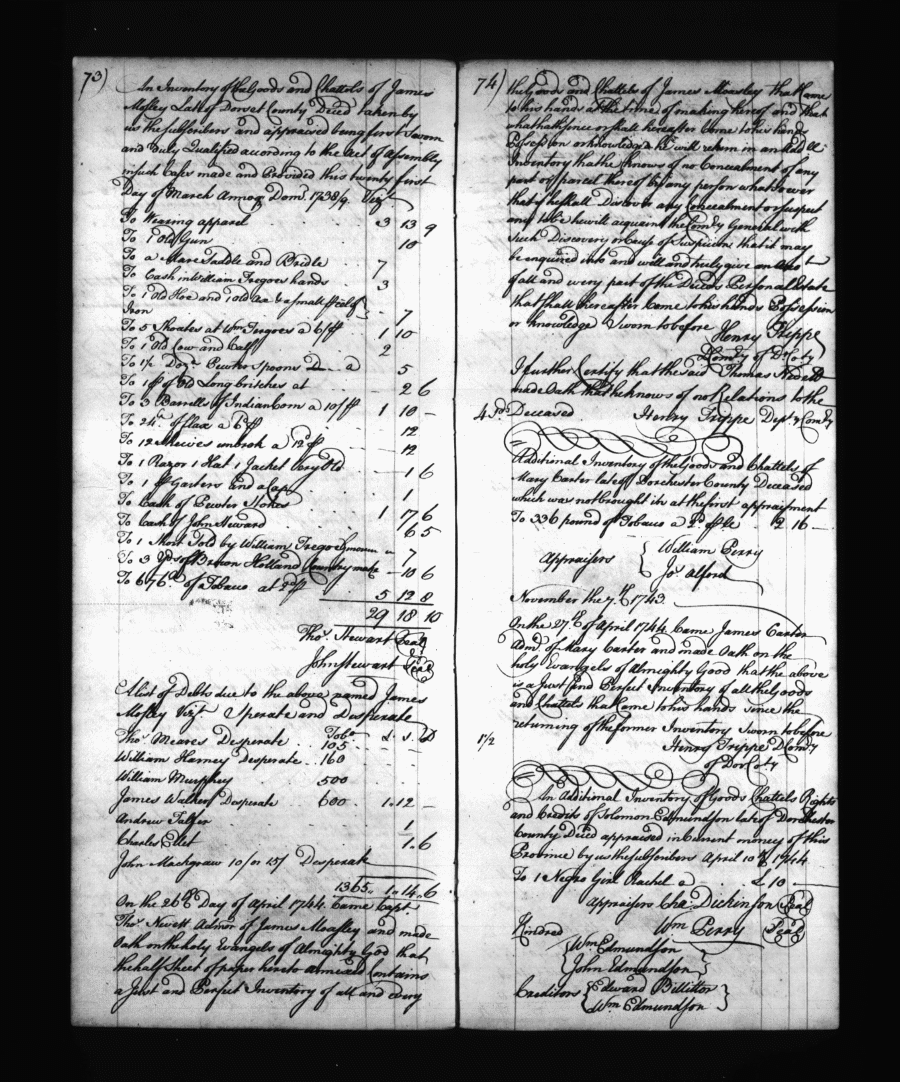 73)
An Inventory of the Goods and Chattels of James
Mosley Late of Dorset County Deced taken by
us the Subscribers and appraised being first Sworn
and Duly Qualified according to the Act of Assembly
in such Cases made and Provided this twenty first
Day of March Annoq Dom. 1738/9 Vizt
To Wearing apparel 3 13 9
To 1 Old Gun 10
To a Mare Saddle and Bridle 7
To Cash in William Tregoes hands 3
To 1 Old Hoe and 1 old Ax & a small
Iron 7
To 5 Shoates at Wm Tregoes a 6/ 1 10
To 1 Old Cow and Calf 2
To 1½ Dozn Pewter Spoons a 5
To 1 pr of Old Long britches at 2 6
To 3 Barrells of Indian Corn a 10/ 1 10 -
To 24 of flax a 6 12
To 12 unbroke a 12 12
To 1 Razor 1 Hat 1 Jacket Very Old 1 6
To 1 pr Garters and a Cap 1
To Cash of Pewter Stokes 1 17 6
To Cash of John Steward 6 5
To 1 Sold by William Tregoe 7
To 3 Yds of Brown Holland Country make 10 6
To 676 of Tobacco at 5 12 8
29 18 10
Thos. Stewart Seal
John Stewart Seal
A list of Debts due to the above named James
Mosley Vizt. Sperate and Desperate
Tobo £ S D
Thos Meares Desperate 105
William Harney Desperate 160
William Murphey 500
James Walker Desperate 600 1..12 -
Andrew 1
Charles Ellet 1..6
John Mackgraw 10/ or 15/ Desperate
1365.. 1..14..6
On the 26th Day of April 1744 Came Capt.
Thos. Newett Admor of James Moasley and made
Oath on the holy Evangels of Almighty God that
the half Sheet of paper hereto annexed Contains
a Just and Perfect Inventory of all and every
74)
the Goods and Chattels of James Moasley that Came
to his hands at the time of making hereof and that
what hath since or shall hereafter Come to his hands
Possession or knowledge he will return in an Add.
Inventory that he knows of no Concealment of any
part or parcel thereof by any person whatsoever
that if he shall Discover any Concealment or suspect
any to be he will acquaint the Comty General with
Such Discovery or Cause of Suspicion that it may
be enquired into and well and truly give an Acct
of all and every part of the Deceds Personal Estate
that shall hereafter Come to his hands Possession
or knowledge Sworn to before Henry Trippe
Comty of Dr Coty
I further Certify that the said Thomas Newett
made Oath that he knows of no Relations to the
4 Sd. Deceased Henry Trippe Depty Comty
Additional Inventory of the Goods and Chattels of
Mary Carter late of Dorchester County Deceased
which was not brought in at the first appraisment
To 336 pound of Tobacco a 12 16 -
Appraisers { William Perry
Jos. Alford
November the 7th 1743.
On the 27th of April 1744 Came James Carter
Adm. of Mary Carter and made Oath on the
holy Evangels of Almighty Good that the above
is a Just and Perfect Inventory of all the Goods
and Chattels that Came to his hands since the
returning of the former Inventory Sworn to before
1/2 Henry Trippe D Comty
of Dor Coty
An Additional Inventory of Goods Chattels Rights
and Credits of Solomon Edmundson late of Dorchester
County Deced appraised in Current money of this
Province by us the Subscribers April 10th 1744
To 1 Negro Girl Rachel a £ 10 -
Appraisers Cha Dickinson Seal
Wm Perry Seal
Kindred
{ Wm Edmundson
John Edmundson }
Creditors { Edward Billitor
Wm Edmundson }